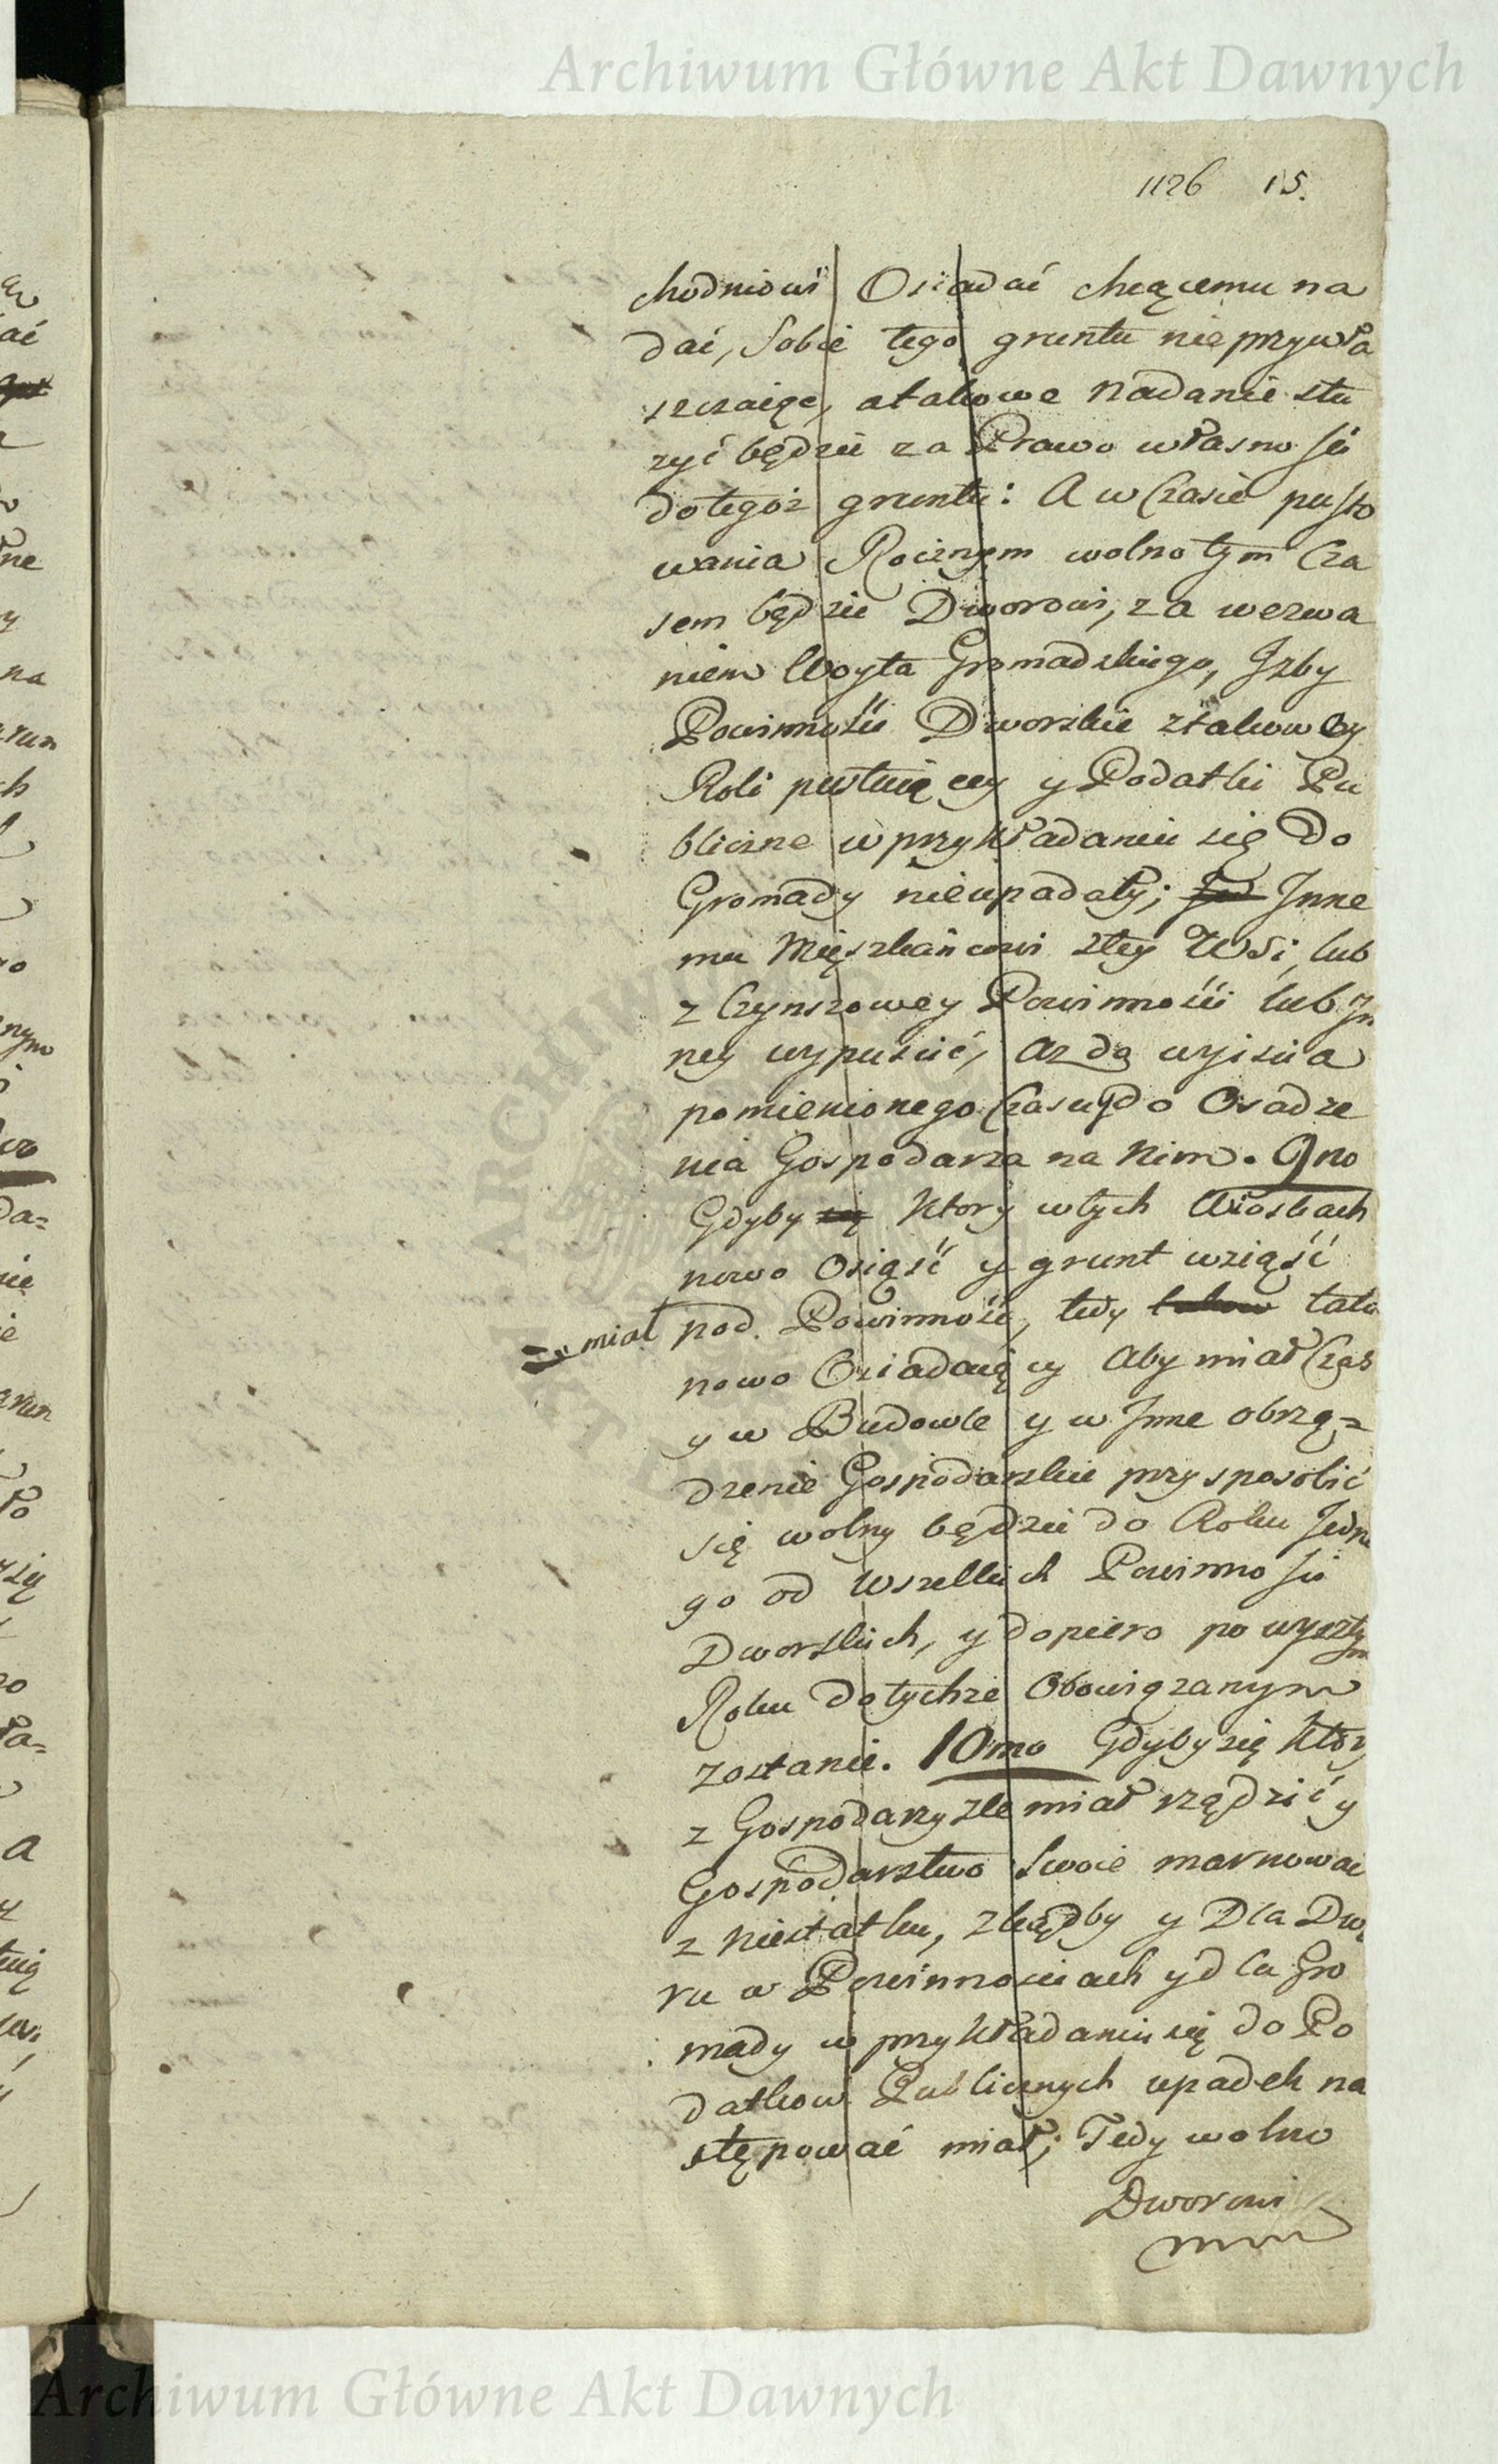 Archiwum Główne Akt Dawnych
1126 15.
chodniowi Osiadać chcącemu na
dać, Sobie tego gruntu nieprzywła
szczaiąc, atakowe Nadanie słu
zyć będzie za Prawo własności
dotegoż gruntu: A w Czasie pusto
wania Rocznym wolno tym Cza
sem będzie Dworowi, za wezwa
niem Woyta Gromadzkiego, Jzby
Powinności Dworskie ztakowey
Roli pustuiącey y Podatki Pu
bliczne wprzykładaniu się Do
Gromady nieupadały; Jnne
mu Mieszkańcowi ztey Wsi, lub
z Czynszowey Powinności lub Jn
ney wypuścić, aż do wyiscia
pomienionego Czasu y do Osadze
nia Gospodarza na Nim. 9no
Gdyby się Ktory wtych Wioskach
nowo Osiąść y grunt wziąść
miał pod Powinność, tedy takow tako
nowo Osiadaiący Aby miał Czas
y w Budowle y w Jnne obrzą=
dzenie Gospodarskie przysposobić
się wolny będzie do Roku Jedne
go od Wszelkich Powinności
Dworskich, y dopiero po wyszłym
Roku Dotychże Obowiązanym
zostanie. 10mo Gdyby się Ktory
z Gospodarzy zle miał rządzić y
Gospodarstwo Swoie marnować
z Niestatku, Zkądby y Dla Dwo
ru w Powinnościach y dla Gro
mady w przykładaniu się do Po
datkow Publicznych upadek na
stępować miał; Tedy wolno
Dworowi
Archiwum Główne Akt Dawnych